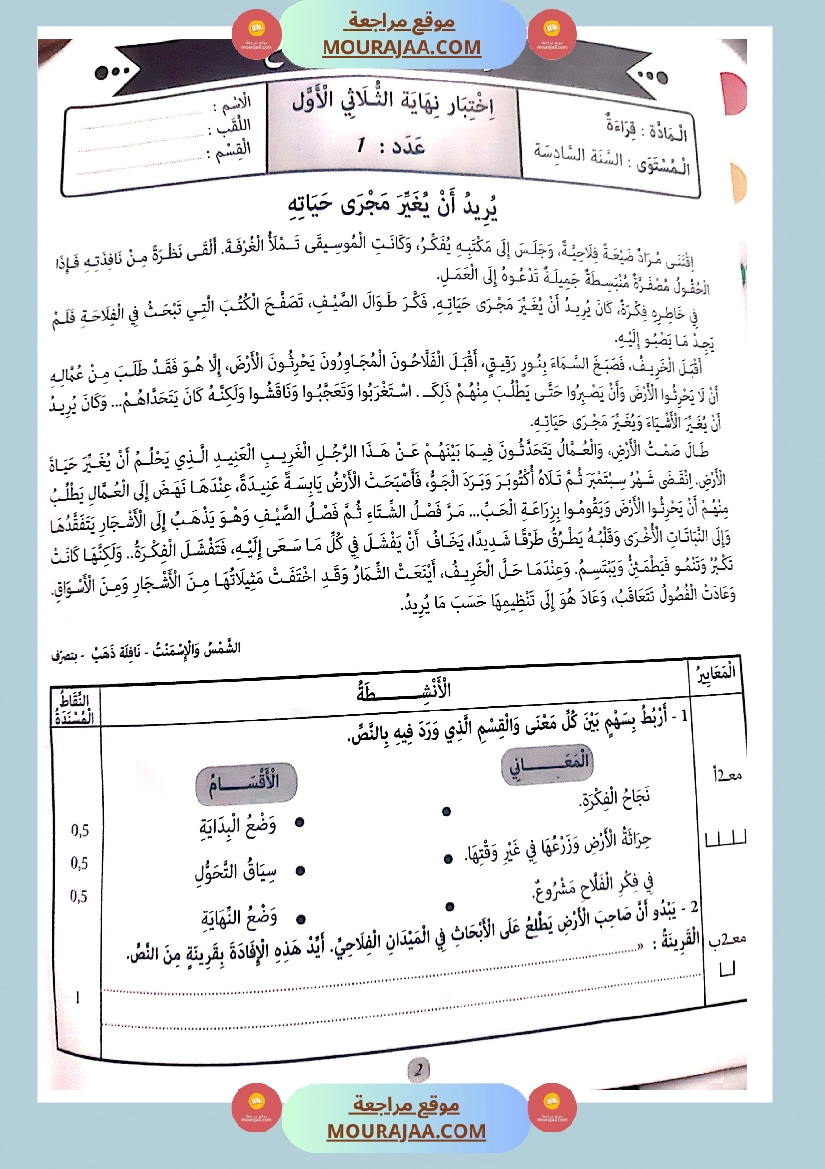 موقع مراجعة
MOURAJAA.COM
الْمَادَّة : قِرَاءَةٌ
الْمُسْتَوَى : السَّنَة السَّادِسَة
اِخْتِبَار نِهَايَة الثُّلَاثِي الْأَوَّل
عَدَد : 1
الْاِسْم :
اللَّقَب :
الْقِسْم :
يُرِيدُ أَنْ يُغَيِّرَ مَجْرَى حَيَاتِهِ
اِقْتَنَى مُرَادٌ ضَيْعَةً فِلَاحِيَّةً، وَجَلَسَ إِلَى مَكْتَبِهِ يُفَكِّرُ، وَكَانَتِ الْمُوسِيقَى تَمْلَأُ الْغُرْفَةَ. أَلْقَى نَظْرَةً مِنْ نَافِذَتِهِ فَإِذَا
الْحُقُولُ مُصْفَرَّةٌ مُنْبَسِطَةٌ جَمِيلَةٌ تَدْعُوهُ إِلَى الْعَمَلِ.
فِي خَاطِرِهِ فِكْرَةٌ، كَانَ يُرِيدُ أَنْ يُغَيِّرَ مَجْرَى حَيَاتِهِ. فَكَّرَ طَوَالَ الصَّيْفِ، تَصَفَّحَ الْكُتُبَ الَّتِي تَبْحَثُ فِي الْفِلَاحَةِ فَلَمْ
يَجِدْ مَا يَصْبُو إِلَيْهِ.
أَقْبَلَ الْخَرِيفُ، فَصَبَغَ السَّمَاءَ بِنُورٍ رَقِيقٍ، أَقْبَلَ الْفَلَّاحُونَ الْمُجَاوِرُونَ يَحْرِثُونَ الْأَرْضَ، إِلَّا هُوَ فَقَدْ طَلَبَ مِنْ عُمَّالِهِ
أَنْ لَا يَحْرِثُوا الْأَرْضَ وَأَنْ يَصْبِرُوا حَتَّى يَطْلُبَ مِنْهُمْ ذَلِكَ . اسْتَغْرَبُوا وَتَعَجَّبُوا وَنَاقَشُوا وَلَكِنَّهُ كَانَ يَتَحَدَّاهُمْ... وَكَانَ يُرِيدُ
أَنْ يُغَيِّرَ الْأَشْيَاءَ وَيُغَيِّرَ مَجْرَى حَيَاتِهِ.
طَالَ صَمْتُ الْأَرْضِ، وَالْعُمَّالُ يَتَحَدَّثُونَ فِيمَا بَيْنَهُمْ عَنْ هَذَا الرَّجُلِ الْغَرِيبِ الْعَنِيدِ الَّذِي يَحْلُمُ أَنْ يُغَيِّرَ حَيَاةَ
الْأَرْضِ. اِنْقَضَى شَهْرُ سِبْتَمْبَرَ ثُمَّ تَلَاهُ أُكْتُوبَرَ وَبَرَدَ الْجَوُّ، فَأَصْبَحَتْ الْأَرْضُ يَابِسَةً عَنِيدَةً، عِنْدَهَا نَهَضَ إِلَى الْعُمَّالِ يَطْلُبُ
مِنْهُمْ أَنْ يَحْرِثُوا الْأَرْضَ وَيَقُومُوا بِزِرَاعَةِ الْحَبِّ... مَرَّ فَصْلُ الشِّتَاءِ ثُمَّ فَصْلُ الصَّيْفِ وَهْوَ يَذْهَبُ إِلَى الْأَشْجَارِ يَتَفَقَّدُهَا
وَإِلَى النَّبَاتَاتِ الْأُخْرَى وَقَلْبُهُ يَطْرُقُ طَرْقًا شَدِيدًا، يَخَافُ أَنْ يَفْشَلَ فِي كُلِّ مَا سَعَى إِلَيْهِ، فَتَفْشَلَ الْفِكْرَةُ.. وَلَكِنَّهَا كَانَتْ
تَكْبُرُ وَتَنْمُو فَيَطْمَئِنُّ وَيَبْتَسِمُ. وَعِنْدَمَا حَلَّ الْخَرِيفُ، أَيْنَعَتْ الثِّمَارُ وَقَدِ اخْتَفَتْ مَثِيلَاتُهَا مِنَ الْأَشْجَارِ وَمِنَ الْأَسْوَاقِ.
وَعَادَتْ الْفُصُولُ تَتَعَاقَبُ، وَعَادَ هُوَ إِلَى تَنْظِيمِهَا حَسَبَ مَا يُرِيدُ.
الشَّمْسُ وَالْإِسْمَنْتُ - نَافِلَة ذَهَبْ - بتصرّف
الْمَعَايِيرُ
الْأَنْشِطَةُ
النُّقَاطُ الْمُسْنَدَةُ
1 - أَرْبُطُ بِسَهْمٍ بَيْنَ كُلِّ مَعْنًى وَالْقِسْمِ الَّذِي وَرَدَ فِيهِ بِالنَّصِّ.
الْمَعَانِي
الْأَقْسَامُ
معـ2أ
نَجَاحُ الْفِكْرَةِ.
وَضْعُ الْبِدَايَةِ
0,5
حِرَاثَةُ الْأَرْضِ وَزَرْعُهَا فِي غَيْرِ وَقْتِهَا.
سِيَاقُ التَّحَوُّلِ
0,5
فِي فِكْرِ الْفَلَّاحِ مَشْرُوعٌ.
وَضْعُ النِّهَايَةِ
0,5
2 - يَبْدُو أَنَّ صَاحِبَ الْأَرْضِ يَطَّلِعُ عَلَى الْأَبْحَاثِ فِي الْمَيْدَانِ الْفِلَاحِيِّ. أَيِّدْ هَذِهِ الْإِفَادَةَ بِقَرِينَةٍ مِنَ النَّصِّ.
معـ2ب
الْقَرِينَةُ : «
1
2
موقع مراجعة
MOURAJAA.COM